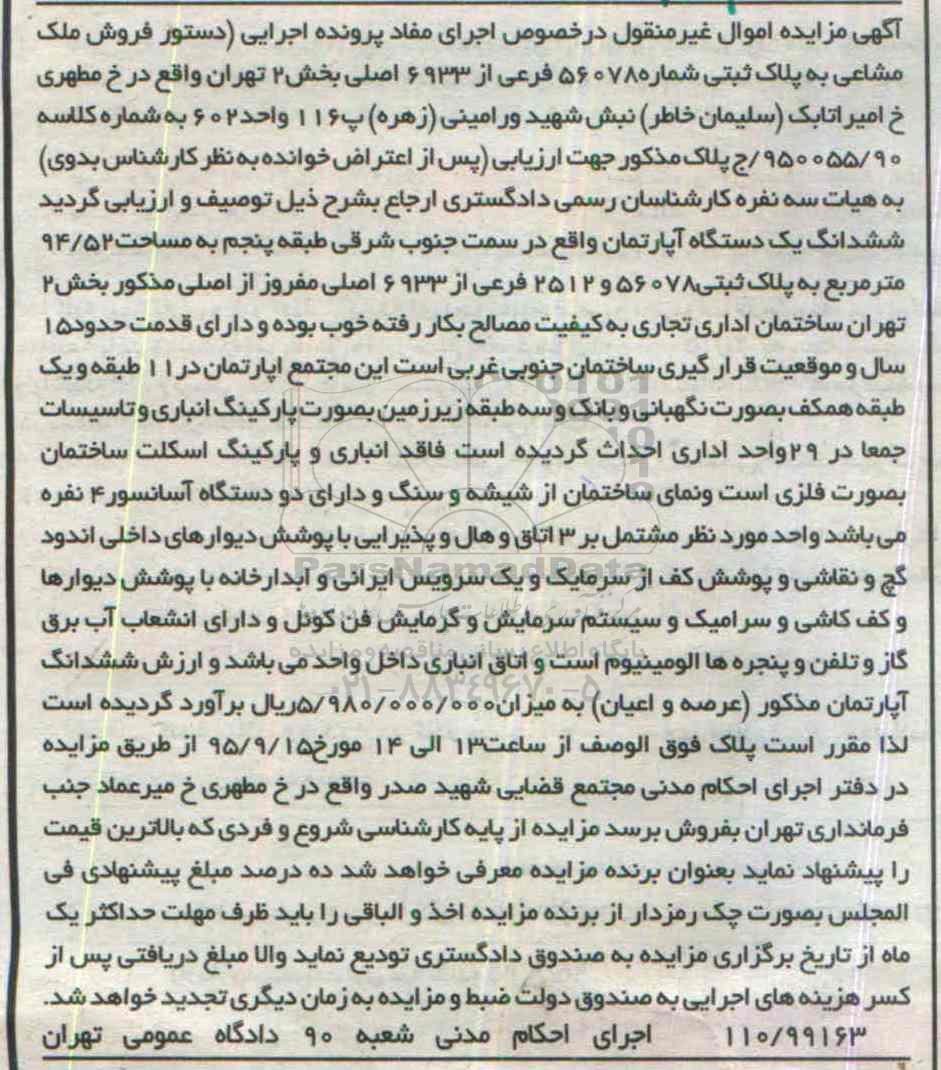 آگهی مزایده اموال غیرمنقول درخصوص اجرای مفاد پرونده اجرایی (دستور فروش ملک
مشاعی به پلاک ثبتی شماره۵۶۰۷۸ فرعی از ۶۹۳۳ اصلی بخش۲ تهران واقع در خ مطهری
خ امیر اتابک (سلیمان خاطر) نبش شهید ورامینی (زهره) پ۱۱۶ واحد۶۰۲ به شماره کلاسه
۹۵۰۰۵۵/۹۰/ج پلاک مذکور جهت ارزیابی (پس از اعتراض خوانده به نظر کارشناس بدوی)
به هیات سه نفره کارشناسان رسمی دادگستری ارجاع بشرح ذیل توصیف و ارزیابی گردید
ششدانگ یک دستگاه آپارتمان واقع در سمت جنوب شرقی طبقه پنجم به مساحت۹۴/۵۲
مترمربع به پلاک ثبتی۵۶۰۷۸ و ۲۵۱۲ فرعی از ۶۹۳۳ اصلی مفروز از اصلی مذکور بخش۲
تهران ساختمان اداری تجاری به کیفیت مصالح بکار رفته خوب بوده و دارای قدمت حدود۱۵
سال و موقعیت قرار گیری ساختمان جنوبی غربی است این مجتمع اپارتمان در۱۱ طبقه و یک
طبقه همکف بصورت نگهبانی و بانک و سه طبقه زیرزمین بصورت پارکینگ انباری و تاسیسات
جمعا در ۲۹واحد اداری احداث گردیده است فاقد انباری و پارکینگ اسکلت ساختمان
بصورت فلزی است ونمای ساختمان از شیشه و سنگ و دارای دو دستگاه آسانسور۴ نفره
می باشد واحد مورد نظر مشتمل بر ۳ اتاق و هال و پذیرایی با پوشش دیوارهای داخلی اندود
گچ و نقاشی و پوشش کف از سرمایک و یک سرویس ایرانی و آبدارخانه با پوشش دیوارها
و کف کاشی و سرامیک و سیستم سرمایش و گرمایش فن کوئل و دارای انشعاب آب برق
گاز و تلفن و پنجره ها الومینیوم است و اتاق انباری داخل واحد می باشد و ارزش ششدانگ
آپارتمان مذکور (عرصه و اعیان) به میزان۵/۹۸۰/۰۰۰/۰۰۰ریال برآورد گردیده است
لذا مقرر است پلاک فوق الوصف از ساعت۱۳ الی ۱۴ مورخ۹۵/۹/۱۵ از طریق مزایده
در دفتر اجرای احکام مدنی مجتمع قضایی شهید صدر واقع در خ مطهری خ میرعماد جنب
فرمانداری تهران بفروش برسد مزایده از پایه کارشناسی شروع و فردی که بالاترین قیمت
را پیشنهاد نماید بعنوان برنده مزایده معرفی خواهد شد ده درصد مبلغ پیشنهادی فی
المجلس بصورت چک رمزدار از برنده مزایده اخذ و الباقی را باید ظرف مهلت حداکثر یک
ماه از تاریخ برگزاری مزایده به صندوق دادگستری تودیع نماید والا مبلغ دریافتی پس از
کسر هزینه های اجرایی به صندوق دولت ضبط و مزایده به زمان دیگری تجدید خواهد شد.
۱۱۰/۹۹۱۶۳ اجرای احکام مدنی شعبه ۹۰ دادگاه عمومی تهران
ParsNamadData
پایگاه اطلاع رسانی مناقصه و مزایده
۰۲۱-۸۸۳۴۹۶۷۰-۵